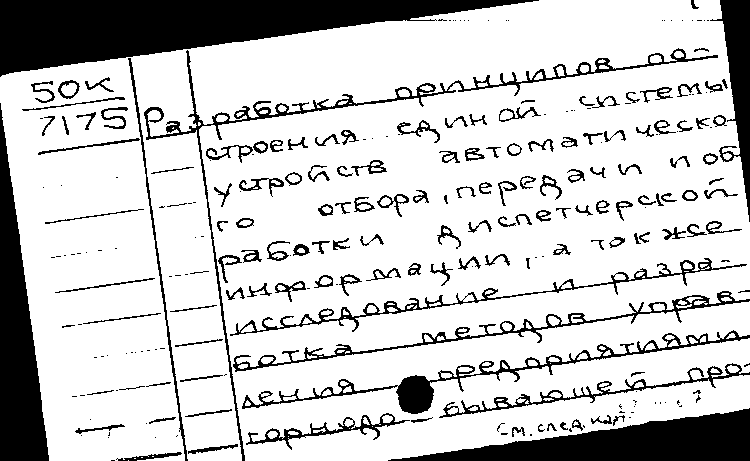 50К
7175
Разработка принципов по-
строения единой системы
устройств автоматическо-
го отбора, передачи и об
работки диспетчерской
информации, а также
исследование и разра-
ботка методов управ-
ления предприятиями
горнодо-бывающей про-
См. след. карт.